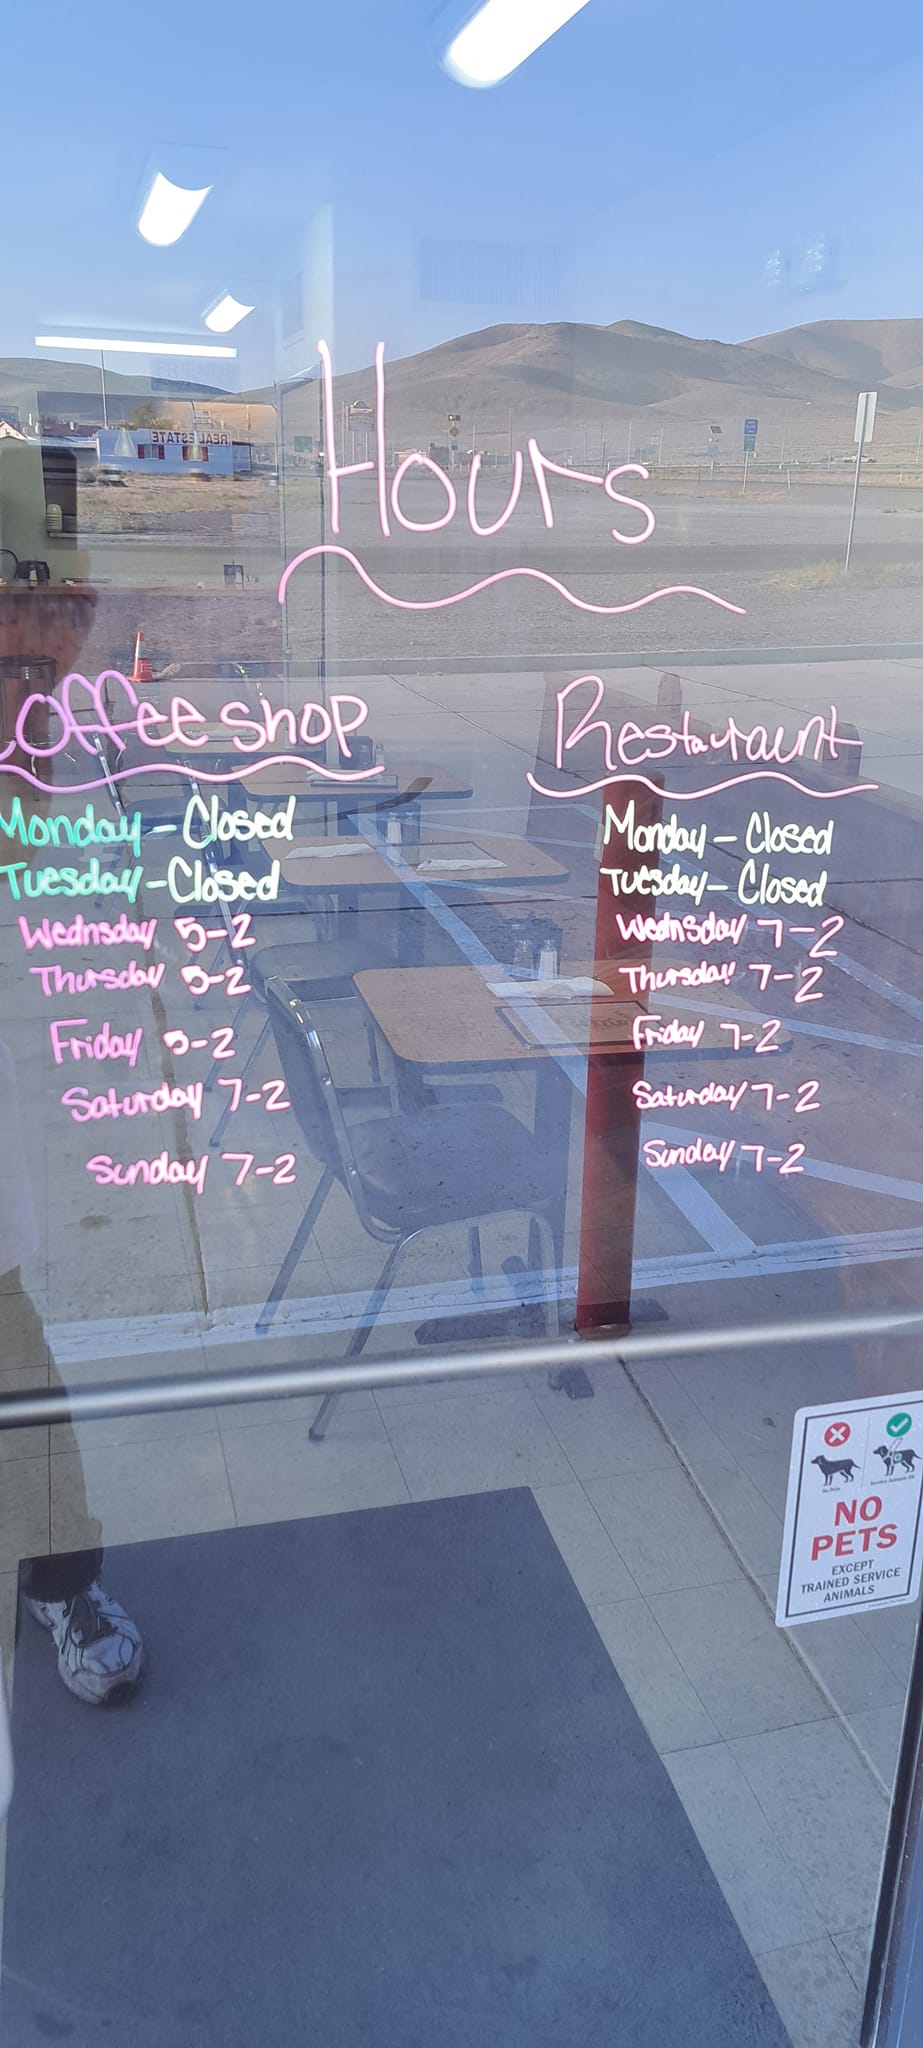 REAL ESTATE
Hours
Coffee shop
Monday - Closed
Tuesday - Closed
Wednsday 5-2
Thursday 5-2
Friday 5-2
Saturday 7-2
Sunday 7-2
Restaurant
Monday - Closed
Tuesday - Closed
Wednsday 7-2
Thursday 7-2
Friday 7-2
Saturday 7-2
Sunday 7-2
No Pets
Service Animals OK
NO
PETS
EXCEPT
TRAINED SERVICE
ANIMALS